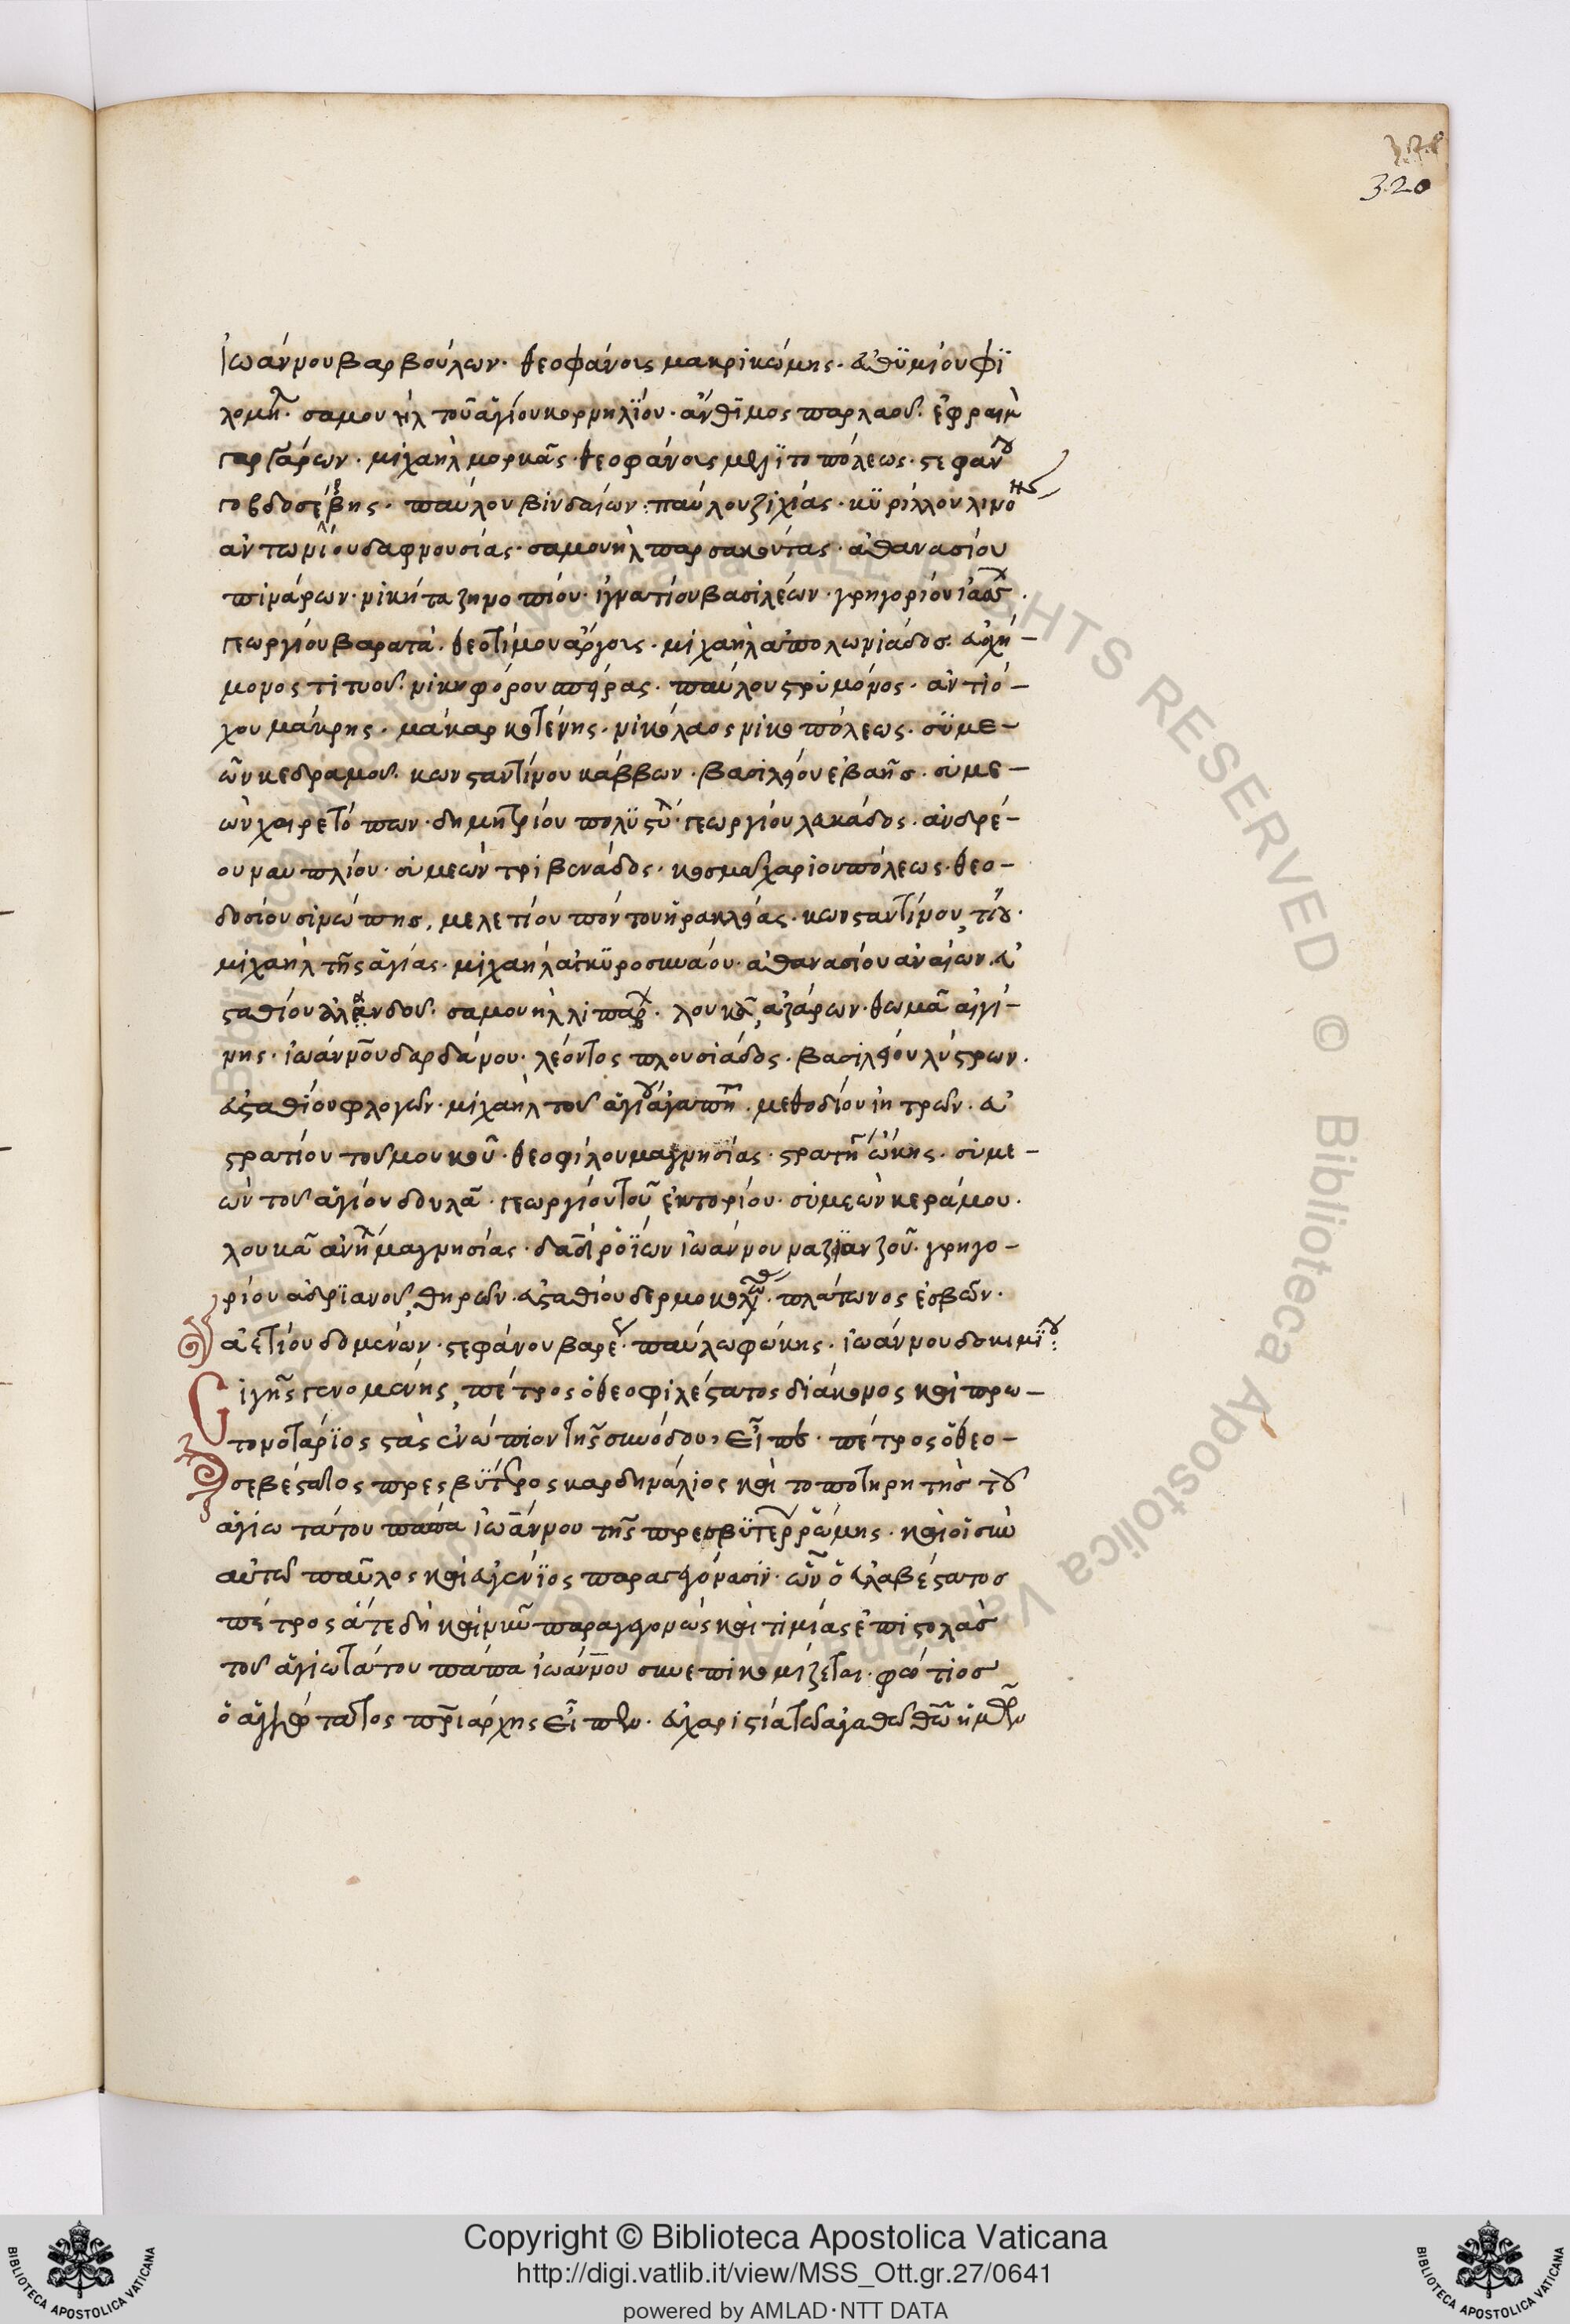 320
Ἰωάννου βαρβούλων· θεοφάνους μακρικώμης· εὐθϋμίου φϊ
λομη· σαμουὴλ τοῦ ἁγίου κορνηλΐου· ἄνθιμος παρλαοῦ· ἐφραὶμ
γαργάρων· μιχαὴλ μορκᾶς· θεοφάνους ϊτοπόλεως· στεφάνου
παύλου βινδαίων· παύλου ζιχίας· κϋρίλλου λιμο
ἀντωνίου δαφνουσίας· σαμουὴλ παρσακούτας· ἀθανασίου
πιμάρων· νικήτα ζηνοπίου· ἰγνατίου βασιλέων· γρηγορίου ἰασσ
γεωργίου βαρατὰ· θεοτίμου ἄργους· μιχαὴλ ἀπολωνιάδος· εὐσχή-
μονος τιτυοῦ· νικηφόρου πήρας· παύλου στρυμόνος· ἀντιό-
χου μάκρης· μάκαρ κοτένης· νικόλαος νικοπόλεως· σϋμε-
ὼν κεδραμοῦ· κωνσταντίνου κάββων· βασιλείου ἐβαης· συμε-
ὼν χαιρετόπων· δημητρίου πολϋστϋ· γεωργίου λακάδος· ἀνδρέ-
ου ναυπλίου· συμεὼν τριβενάδος· κοσμα χαριουπόλεως· θεο-
δοσίου σινώπης, μελετίου πόντου ἡρακλείας· κωνσταντίνου, τίου·
μιχαὴλ τῆς ἁγίας· μιχαὴλ ἀγκϋροσυναου· ἀθανασίου ἀναίων· εὐ
σταθίου ἀλάνδου· σαμουὴλ λιπαρ· λουκᾶ, ἀζάρων· θωμᾶ αἰγί-
νης· ἰωάννου δαρδάνου· λέοντος πλουσιάδος· βασιλείου λύστρων·
εὐσταθίου φλογῶν· μιχαὴλ τοῦ ἁγίου ἀγαπη· μεθοδίου ἰητρῶν· εὐ
στρατίου τουμουκοῦ· θεοφίλου μαγνησίας· στρατη ὤκης· συμε-
ὼν τοῦ ἁγίου δουλᾶ· γεωργίου τοῦ ἐκτορίου· συμεὼν κεράμου·
λουκᾶ ἀνηλ μαγνησίας· δαδ ροΐων ἰωάννου ναζϊανζοῦ· γρηγο-
ρίου ἀδρϊανοῦ, θηρῶν· εὐσταθίου δερμοκολω· πλάτωνος ἐσβῶν·
ἀετίου δομενων· στεφάνου βαρε· παύλω φώκης· ἰωάννου δοκιμΐου:
Σιγῆς γενομένης, πέτρος ὁ θεοφιλέστατος διάκονος καὶ πρω-
τονοτάρϊος στὰς ἐνώπιον τῆς συνόδου, εἶπε· πέτρος ὁ θεο-
σεβέστατος πρεσβΰτερος καρδηνάλιος καὶ τοποτηρητὴς τοῦ
ἁγιωτάτου πάπα ἰωάννου τῆς πρεσβϋτέρ ῥώμης· καὶ οἱ σὺν
αὐτῶ παῦλος καὶ εὐγένϊος παραγεγόνασιν· ὧν ὁ εὐλαβέστατος
πέτρος ἅτε δὴ καὶ νῦν παραγεγονὼς καὶ τιμίας ἐπιστολὰς
τοῦ ἁγιωτάτου πάπα ἰωάννου συνεπικομίζεται· φώτιος
ὁ ἁγιώτατος πατριάρχης εἶπεν· εὐχαριστία τῶ ἀγαθῶ θεῶ ἡμῶν
© Biblioteca Apostolica Vaticana ALL RIGHTS RESERVED © Biblioteca Apostolica Vaticana
Copyright © Biblioteca Apostolica Vaticana
http://digi.vatlib.it/view/MSS_Ott.gr.27/0641
powered by AMLAD·NTT DATA
BIBLIOTECA APOSTOLICA VATICANA
BIBLIOTECA APOSTOLICA VATICANA